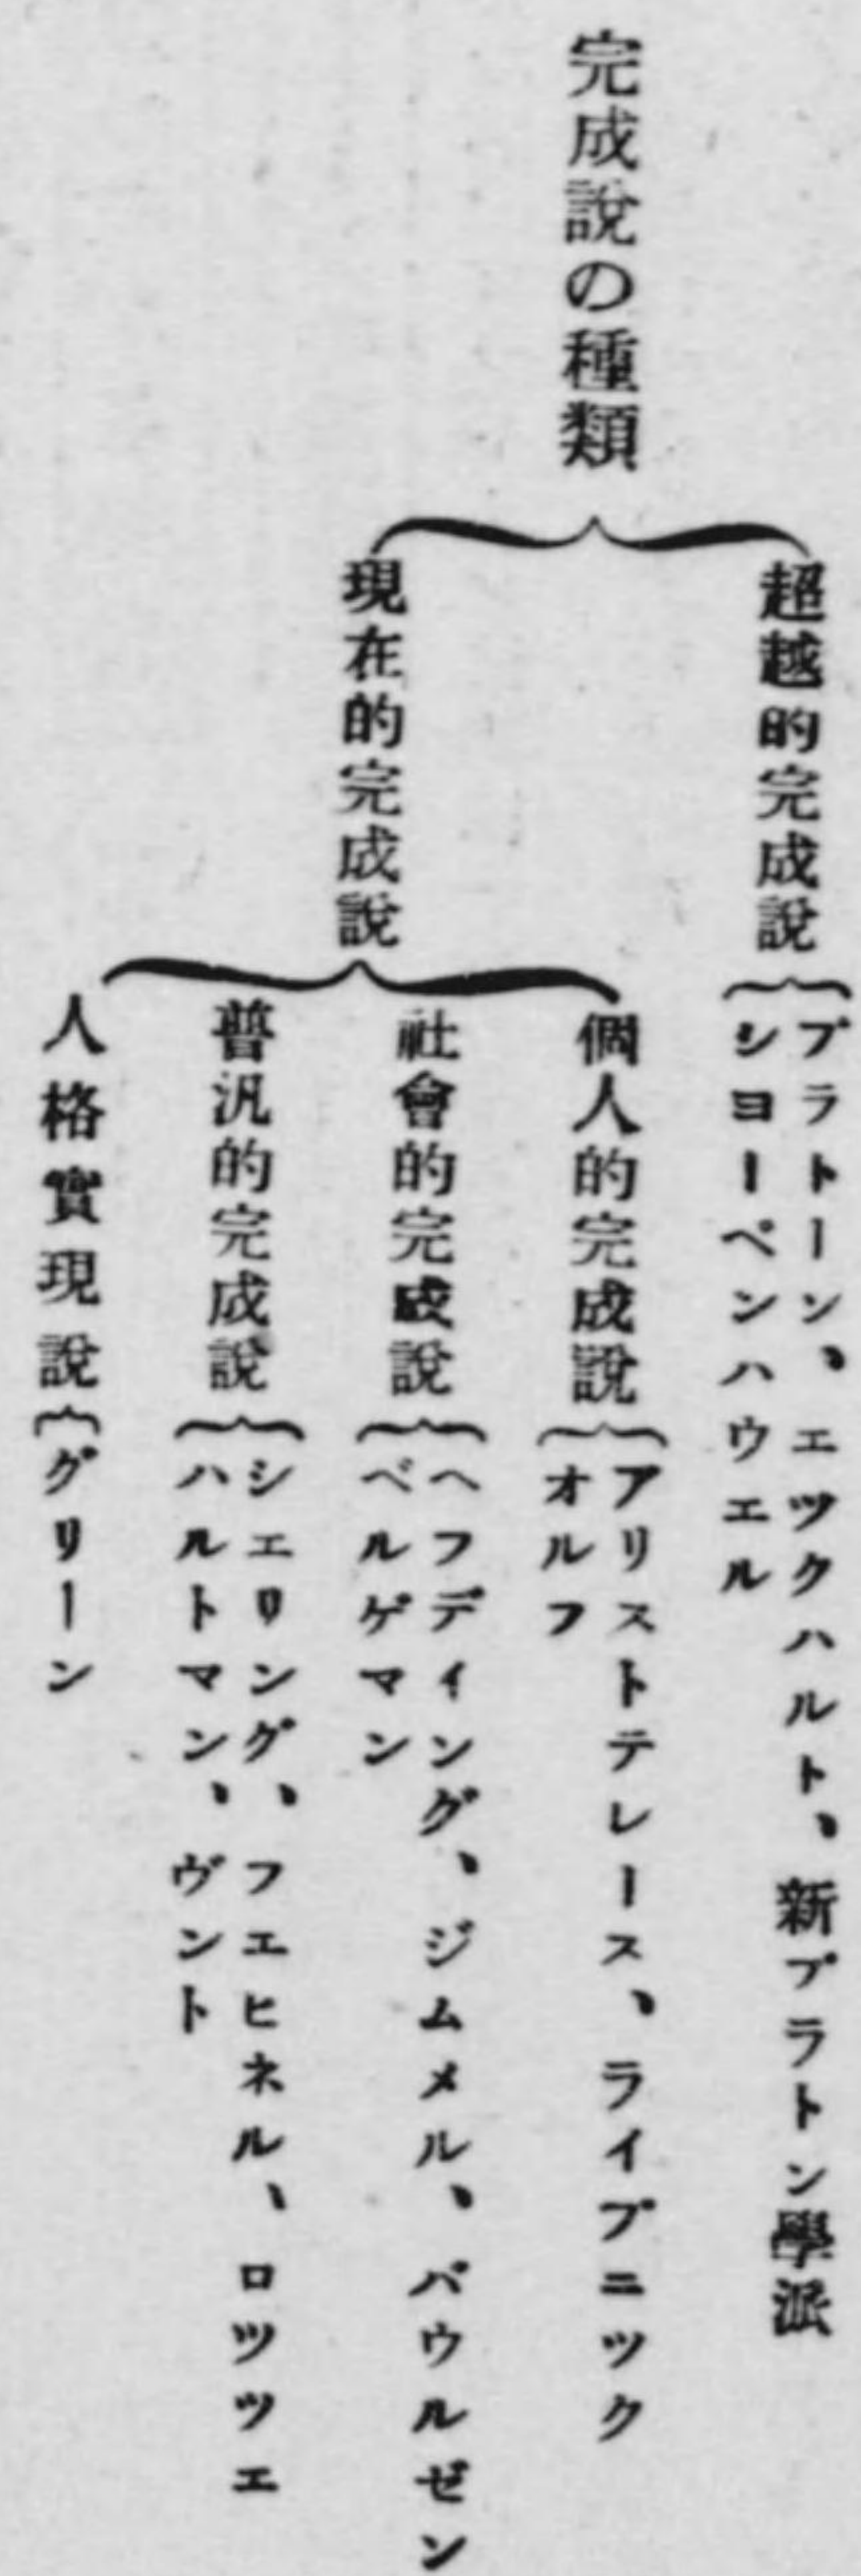 完成說の種類
超越的完成說
プラトーン、エツクハルト、新プラトン學派
シヨーペンハウエル
現在的完成說
個人的完成說
アリストテレース、ライプニツク
オルフ
社會的完成說
ヘフデイング、ジムメル、パウルゼン
ベルゲマン
普汎的完成說
シエリング、フエヒネル、ロツツエ
ハルトマン、ヴント
人格實現說
グリーン